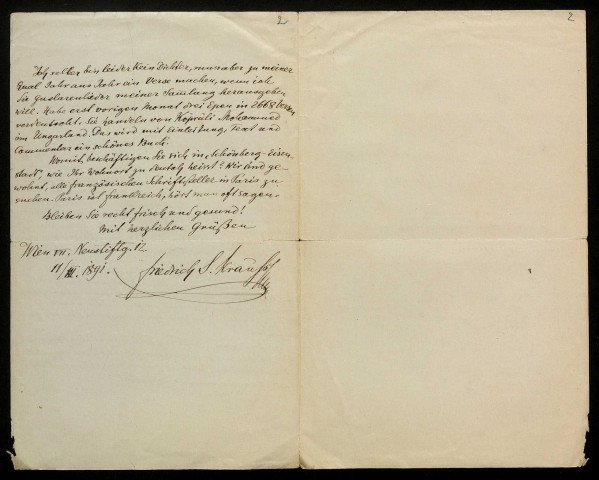 2
2
Ich selber bin leider kein Dichter, muss aber zu meiner
Qual Jahr aus Jahr ein Verse machen, wenn ich
die Guslarenlieder meiner Samlung herausgeben
will. Habe erst vorigen Monat drei Epen in 2668 Versen
verdeutscht. Sie handeln von Köprüli Mohammed
im Ungarland. Das wird mit Einleitung, Text und
Commentar ein schönes Buch.
Womit beschäftigen Sie sich in „Schönberg-Eisen-
stadt", wie Ihr Wohnort zu deutsch heisst? Wir sind ge-
wohnt, alle französischen Schriftsteller in Paris zu
suchen. Paris ist Frankreich, hört man oft sagen.
Bleiben Sie recht frisch und gesund!
Mit herzlichen Grüßen
Wien VII. Neustiftg. 12.
11/III. 1891.
Friedrich S. Krauss